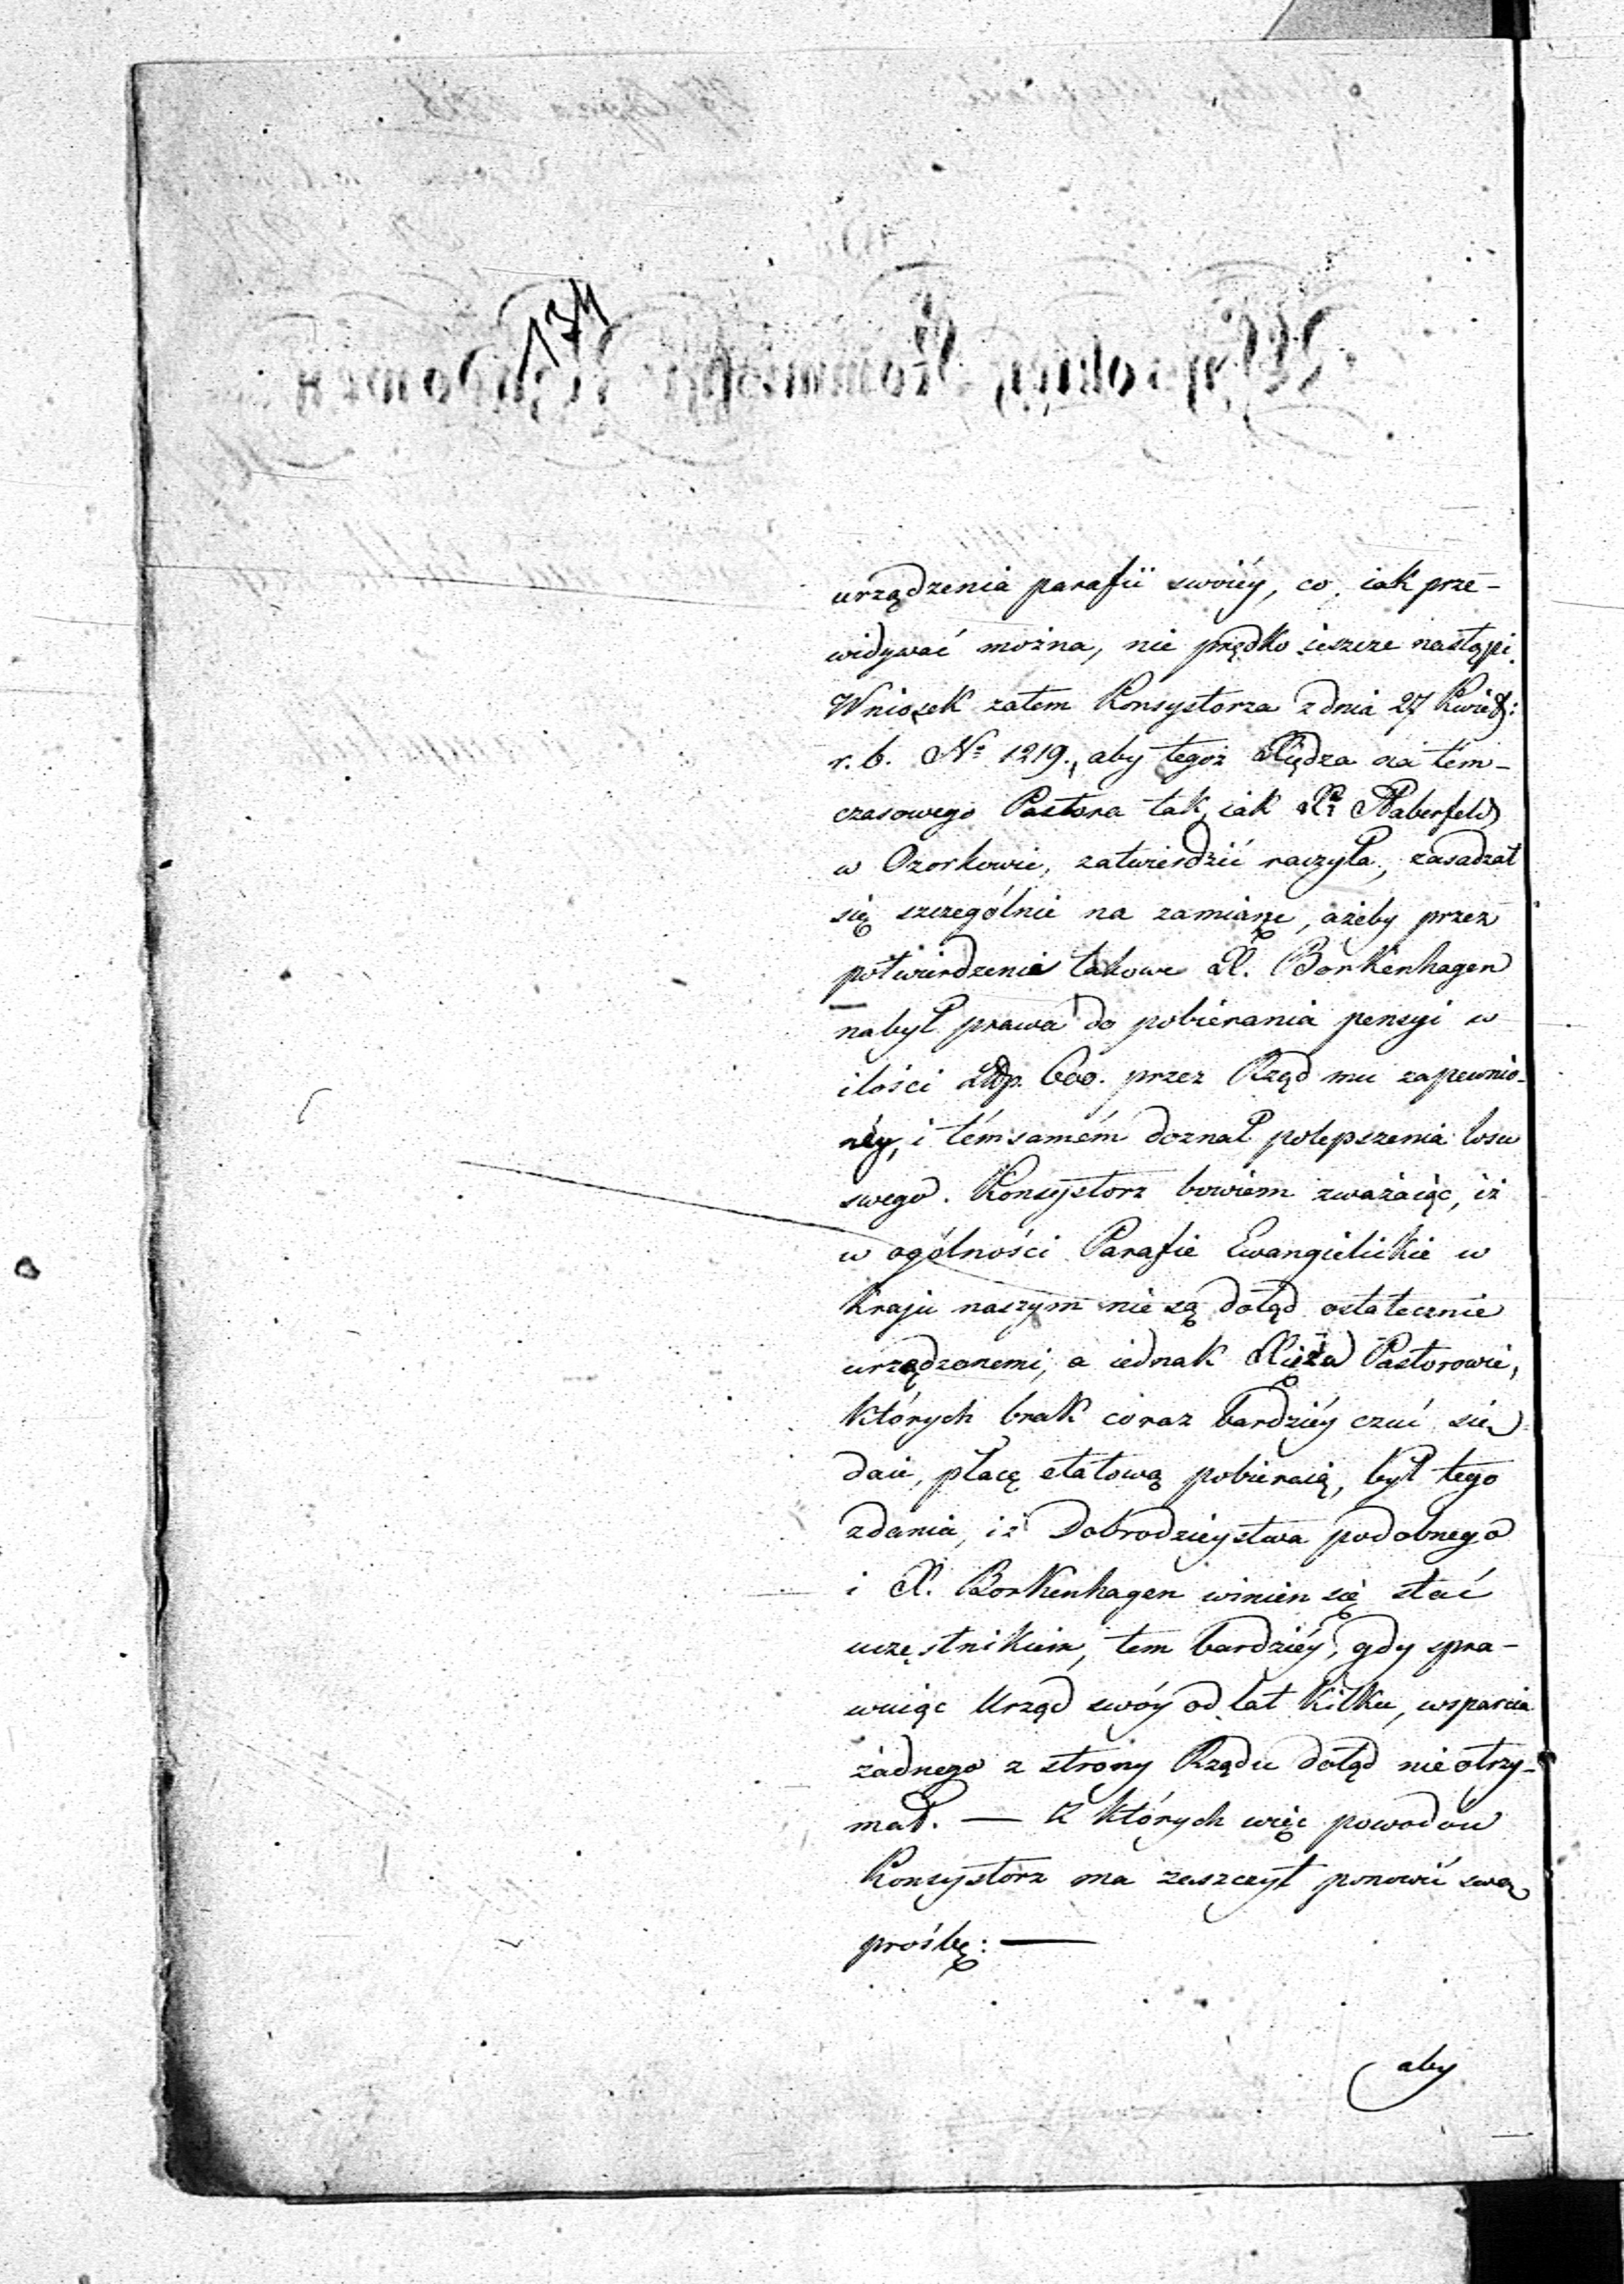 134
urządzenia parafii swoiéy, co, iak prze-
widywać można, nie prędko ieszcze nastąpi.
Wniosek zatem Konsystorza z dnia 27 Kwiet:
r. b. Nº 1219., aby tegoż Xiędza na tém-
czasowego Pastora tak, iak Xa Haberfeld
w Ozorkowie, zatwierdzić raczyła, zasadzał
się szczególnie na zamiarze, ażeby przez
potwierdzenie takowe X. Borkenhagen
nabył prawa do pobierania pensyi w
ilości Złp. 600. przez Rząd mu zapewnio-
néy, i témsamém doznał polepszenia losu
swego. Konsystorz bowiem zważaiąc, iż
w ogólności Parafie Ewangielickie w
Kraju naszym nie są dotąd ostatecznie
urządzonemi, a iednak Xięża Pastorowie,
których brak coraz bardziéy czuć się
daie, płacę etatową pobieraią, był tego
zdania, iż Dobrodzieystwa podobnego
i X. Borkenhagen winien się stać
uczęstnikiem, tem bardziéy, gdy spra-
wuiąc Urząd swóy od lat kilku, wsparcia
żadnego z strony Rządu dotąd nie otrzy-
mał. — Z których więc powodów
Konsystorz ma zaszczyt ponowić swą
prośbę: —
aby